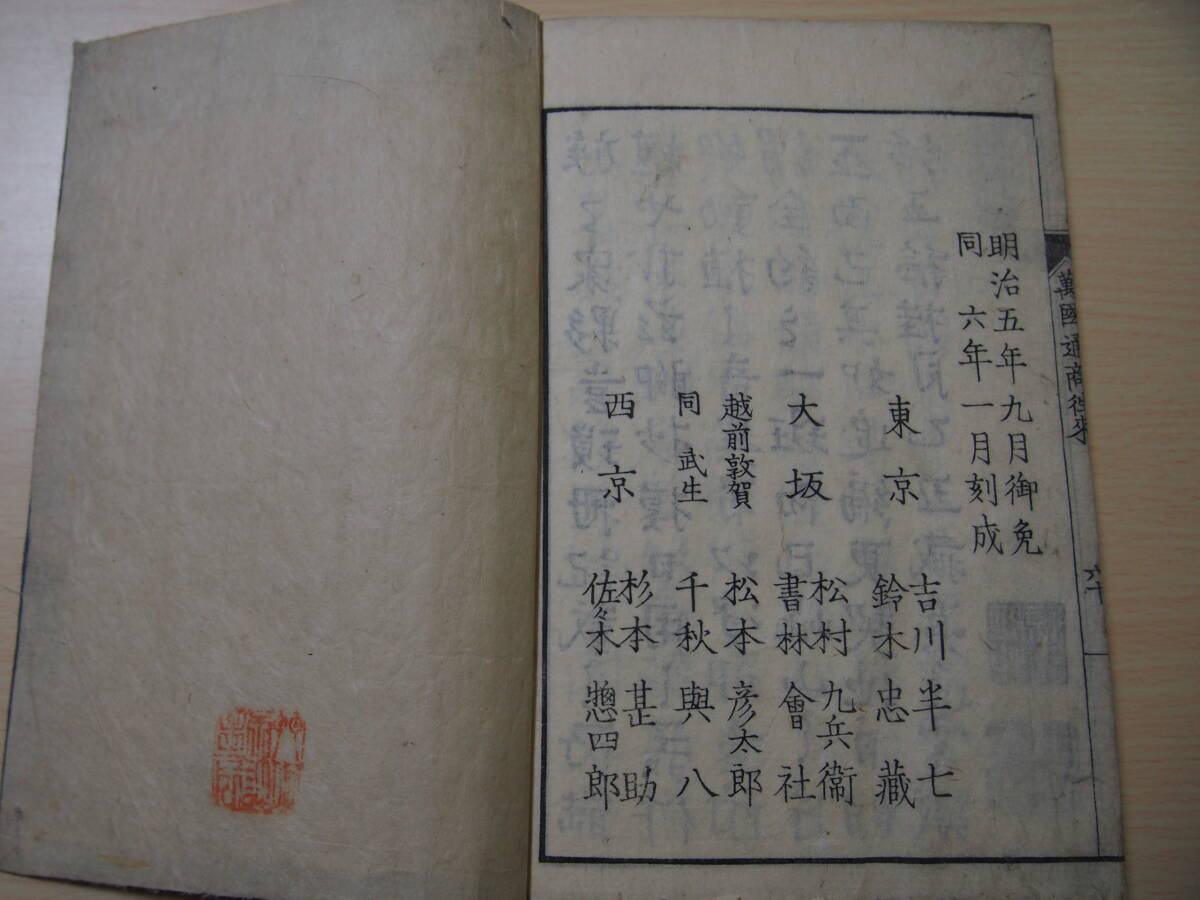 萬國通商往來
六十
明治五年九月御免
同六年一月刻成
東京
吉川半七
鈴木忠藏
大坂
松村九兵衞
書林會社
越前敦賀
松本彦太郎
同武生
千秋與八
西京
杉本甚助
佐々木惣四郎